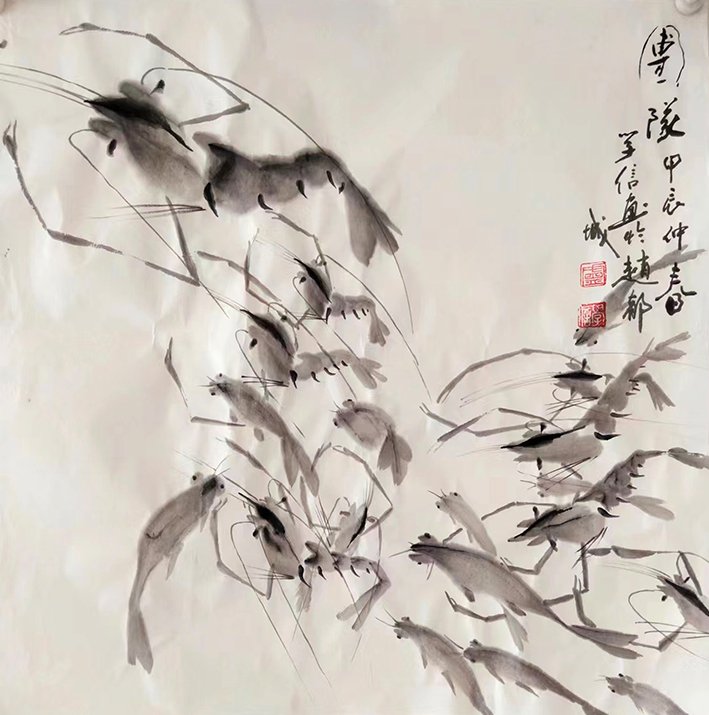 團隊甲辰仲春
学信畫於趙都
城